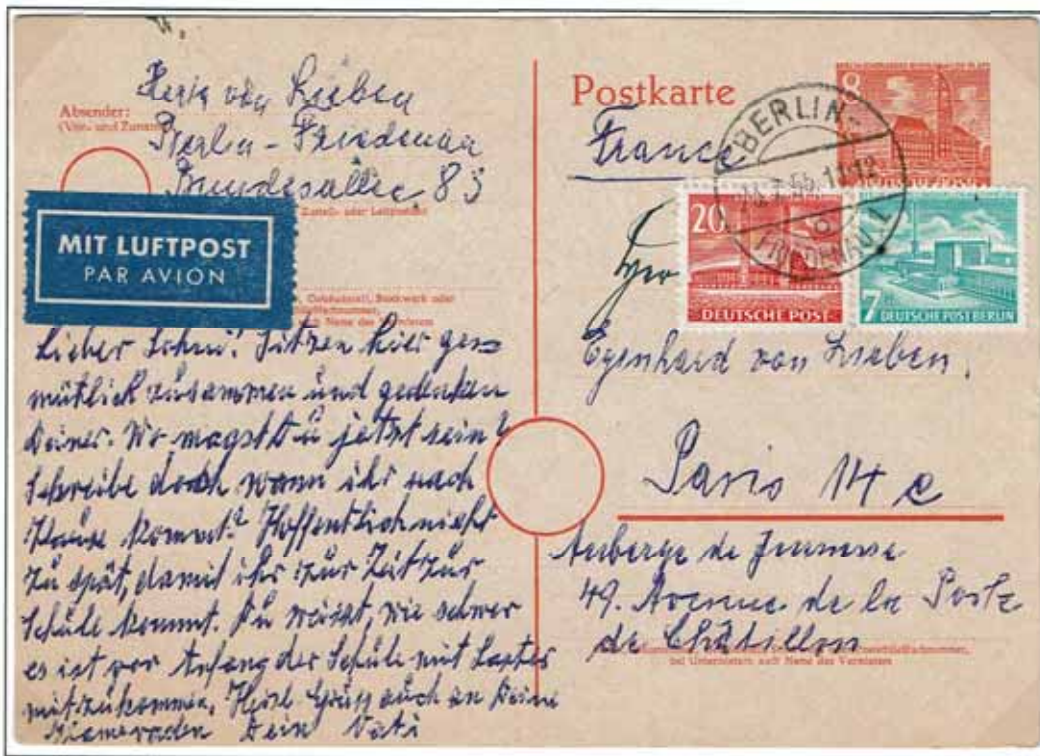 von Lieben
Berlin - Friedenau
Bundesallee 83
Absender:
(Vor- und Zuname)
Zustell- oder Leitpostamt
MIT LUFTPOST
PAR AVION
Lieber Sohn! Sitzen hier ge=
mütlich zusammen und gedenken
Deiner. Wo magst Du jetzt sein?
Schreibe doch wann ihr nach
Hause kommt? Hoffentlich nicht
zu spät, damit ihr zur Zeit zur
Schule kommt. Du weisst, wie schwer
es ist vor Anfang der Schule mit Laster
mitzukommen. Herzl. Gruss auch an Deine
Kameraden Dein Vati
Postkarte
France
8
BERLIN-
55.11-12
FRIEDENAU 1
20
DEUTSCHE POST
7
DEUTSCHE POST BERLIN
Egenhard von Lieben.
Paris 14 e
Auberge de Jeunesse
49. Avenue de la Porte
de Châtillon
bei Untermietern auch Name des Vermieters